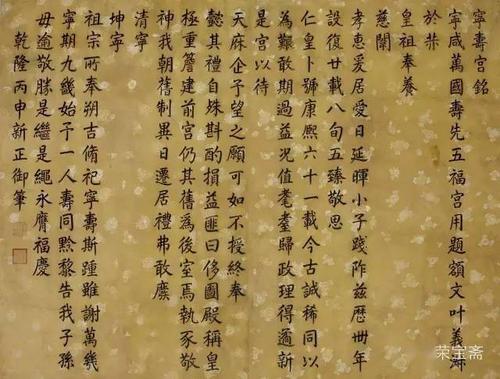 寧壽宮銘
寧咸萬國壽先五福宫用題額文叶義淵
於昔
皇祖奉養
慈闈
孝惠爰居愛日延暉小子踐阼茲歷卅年
設復廿載八旬五臻敬思
仁皇卜號康熙六十一載今古誠稀同以
為艱敢期過益况值耄耋歸政理得適新
是宫以待
天庥企予望之願可如不授終奉
懿其禮自殊斟酌損益匪曰侈圖殿稱皇
極重簷建前宫仍其舊為後室焉執豕敬
神我朝舊制異日遷居禮弗敢廢
清寧
坤寧
祖宗所奉朔吉脩祀寧壽斯踵雖謝萬幾
寧期九幾始予一人壽同黔黎告我子孫
毋逾敬勝是繼是繩永膺福慶
乾隆丙申新正御筆
荣宝斋